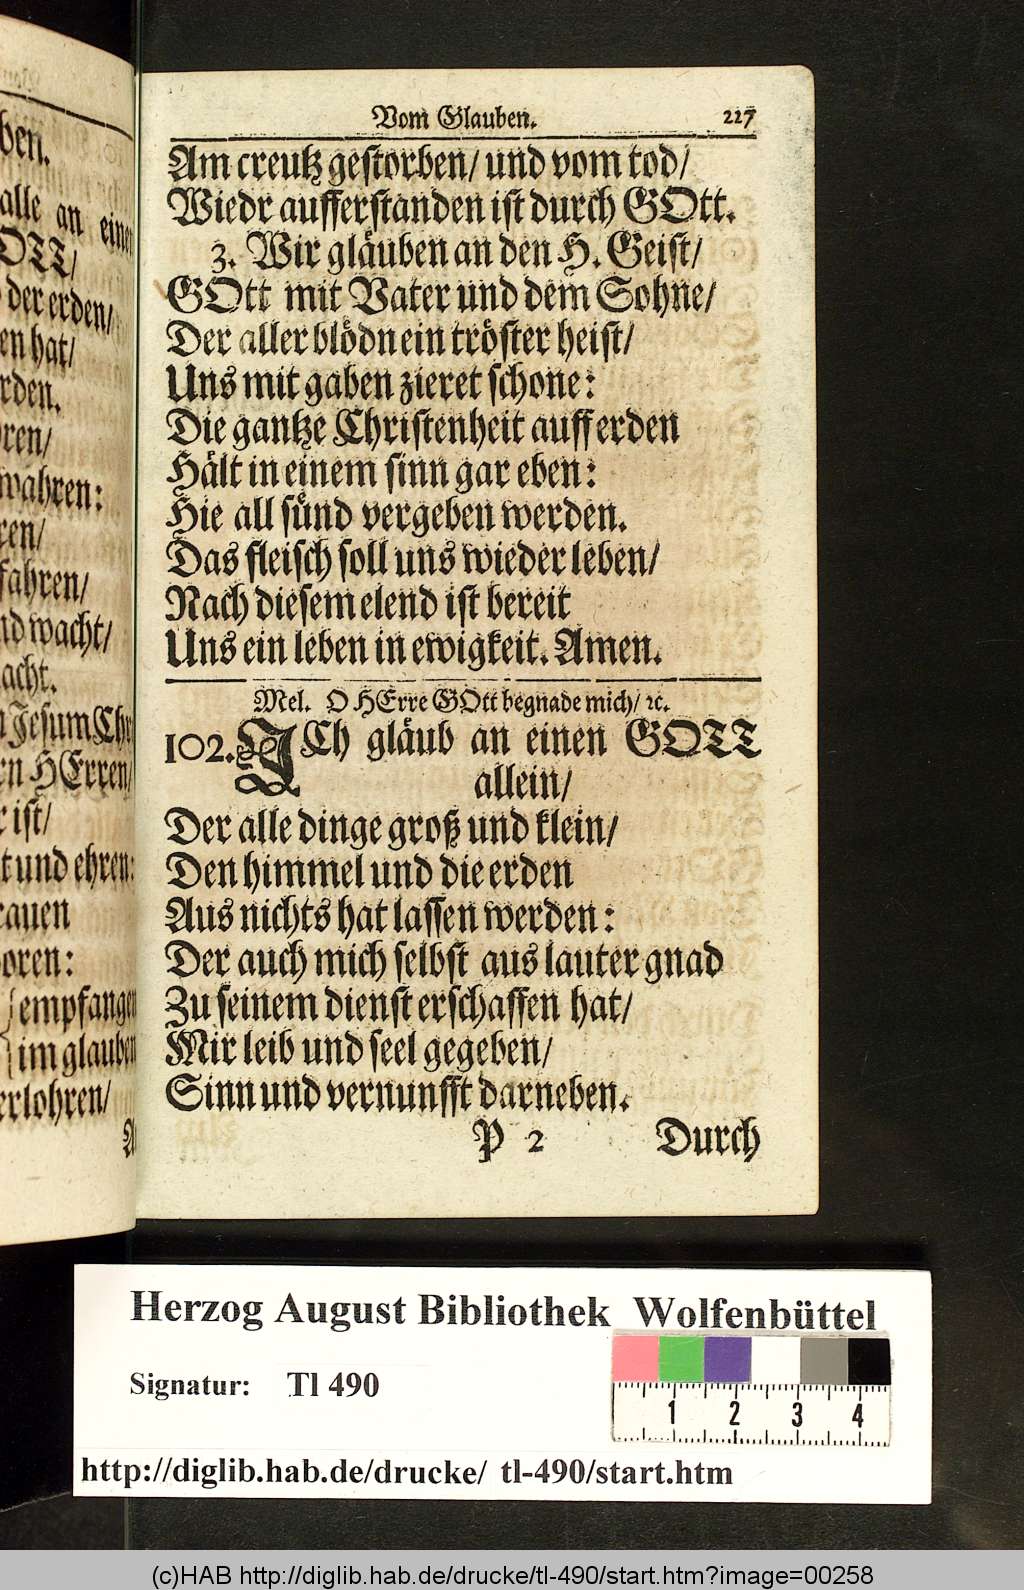 ben.
alle an einen
OTT/
der erden/
en hat/
rden.
ren/
wahren:
ren/
fahren/
nd wacht/
acht.
Jesum Chr
rn HErren/
r ist/
t und ehren:
rauen
oren:
empfangen
im glauben
erlohren/
A
Vom Glauben. 227
Am creutz gestorben/ und vom tod/
Wiedr aufferstanden ist durch GOtt.
3. Wir gläuben an den H. Geist/
GOtt mit Vater und dem Sohne/
Der aller blödn ein tröster heist/
Uns mit gaben zieret schone:
Die gantze Christenheit auff erden
Hält in einem sinn gar eben:
Hie all sünd vergeben werden.
Das fleisch soll uns wieder leben/
Nach diesem elend ist bereit
Uns ein leben in ewigkeit. Amen.
Mel. O HErre GOtt begnade mich/ ꝛc.
102. ICh gläub an einen GOTT
allein/
Der alle dinge groß und klein/
Den himmel und die erden
Aus nichts hat lassen werden:
Der auch mich selbst aus lauter gnad
Zu seinem dienst erschaffen hat/
Mir leib und seel gegeben/
Sinn und vernunfft darneben.
P 2 Durch
Herzog August Bibliothek Wolfenbüttel
Signatur: Tl 490
1 2 3 4
http://diglib.hab.de/drucke/ tl-490/start.htm
(c)HAB http://diglib.hab.de/drucke/tl-490/start.htm?image=00258